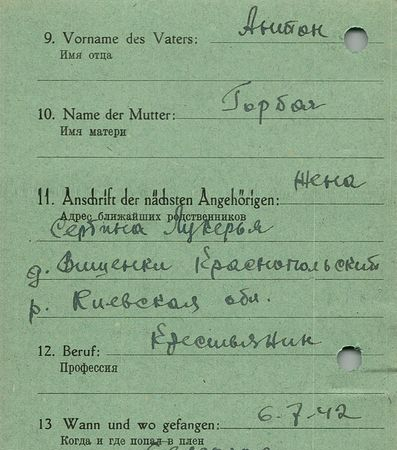 9. Vorname des Vaters: Антон
Имя отца
10. Name der Mutter: Горбая
Имя матери
Жена
11. Anschrift der nächsten Angehörigen:
Адрес ближайших родственников
Лукерья
д. Вищенки Краснопольский
р. Киевская обл.
12. Beruf: Крестьянин
Профессия
13 Wann und wo gefangen: 6-7-42
Когда и где попал в плен